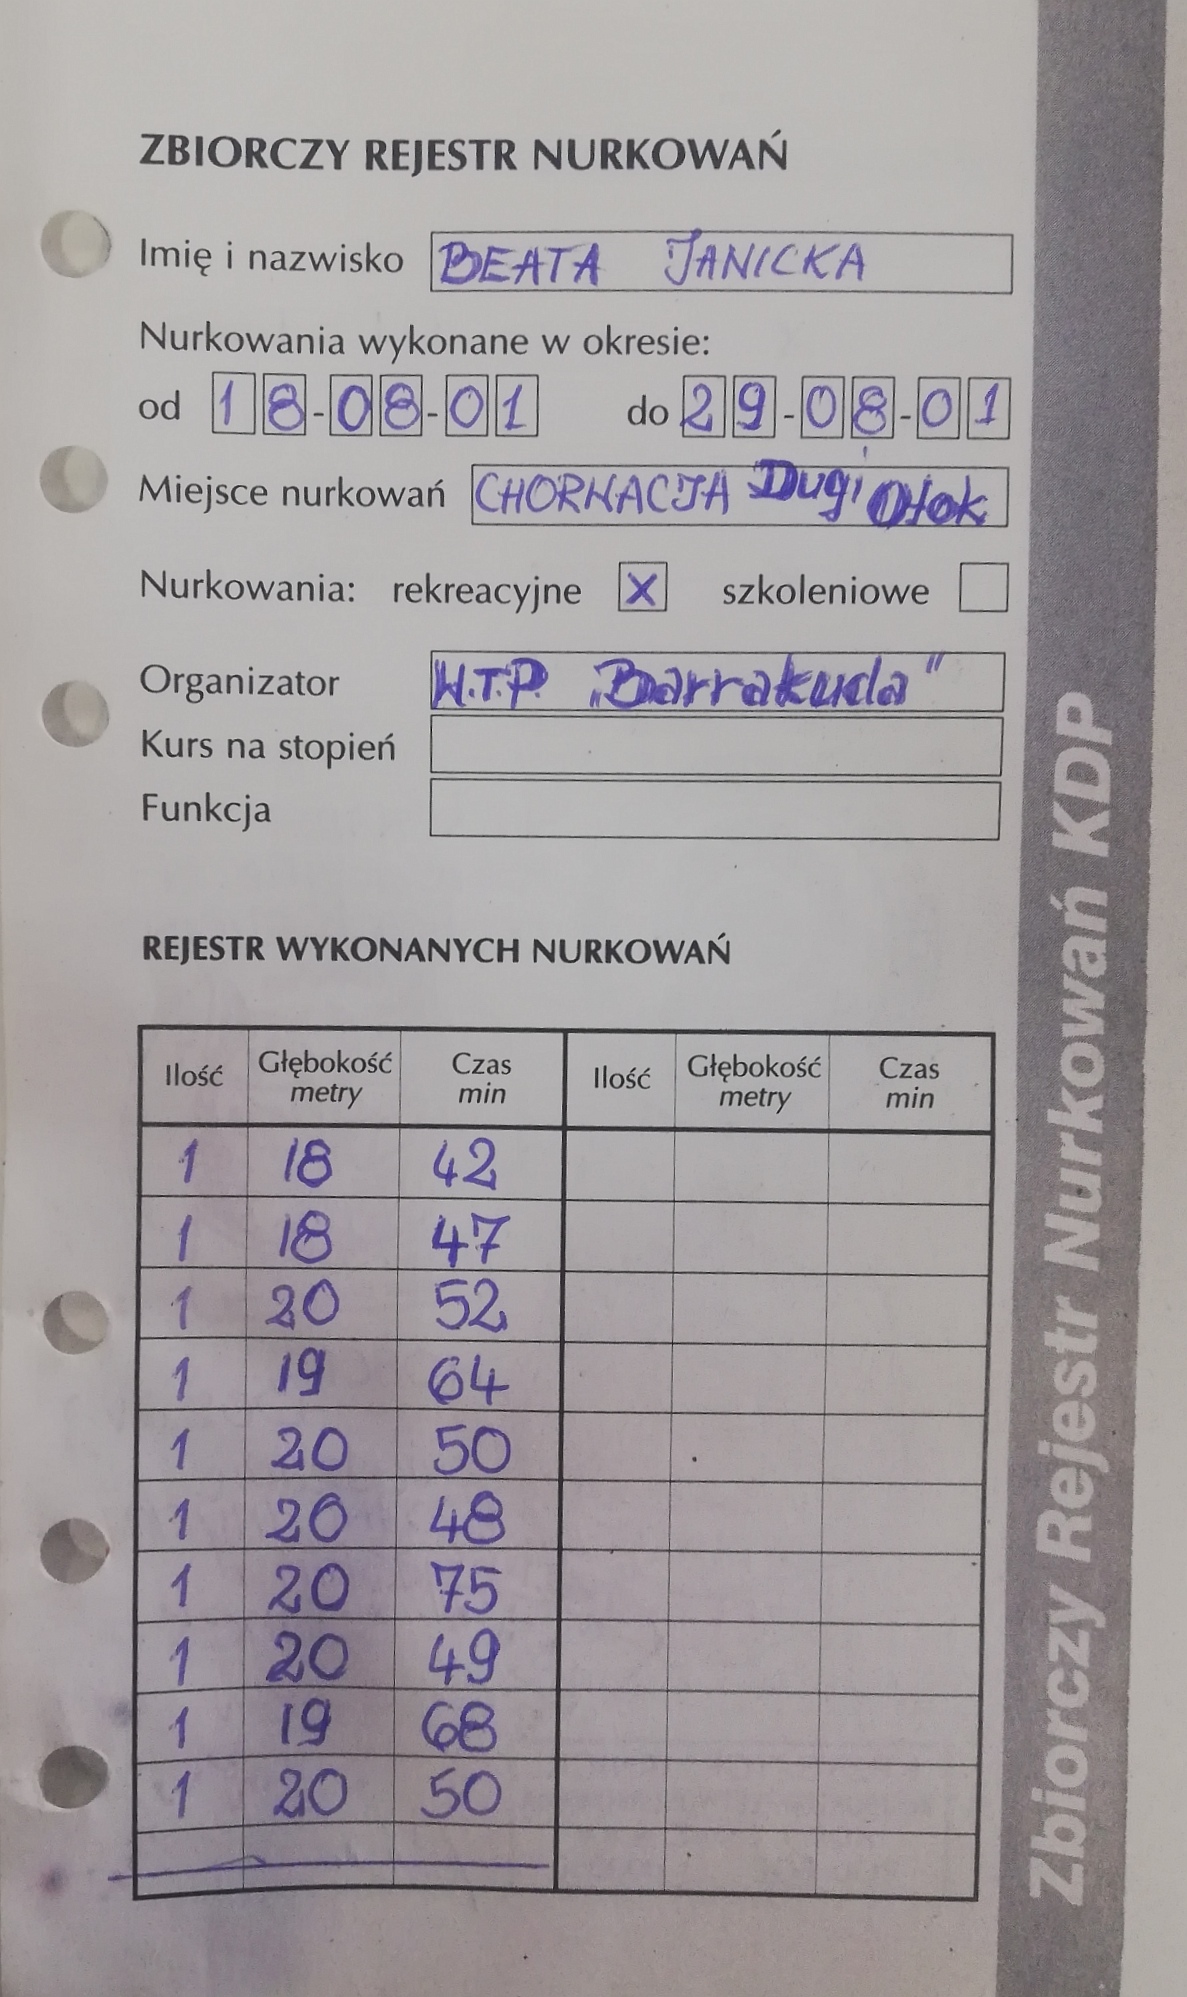 ZBIORCZY REJESTR NURKOWAŃ
Imię i nazwisko BEATA JANICKA
Nurkowania wykonane w okresie:
od 18-08-01 do 29-08-01
Miejsce nurkowań CHORWACJA Dugi Otok
Nurkowania: rekreacyjne X szkoleniowe
Organizator W.T.P. „Barrakuda"
Kurs na stopień
Funkcja
REJESTR WYKONANYCH NURKOWAŃ
Ilość Głębokość metry Czas min Ilość Głębokość metry Czas min
1 18 42
1 18 47
1 20 52
1 19 64
1 20 50
1 20 48
1 20 75
1 20 49
1 19 68
1 20 50
Zbiorczy Rejestr Nurkowań KDP